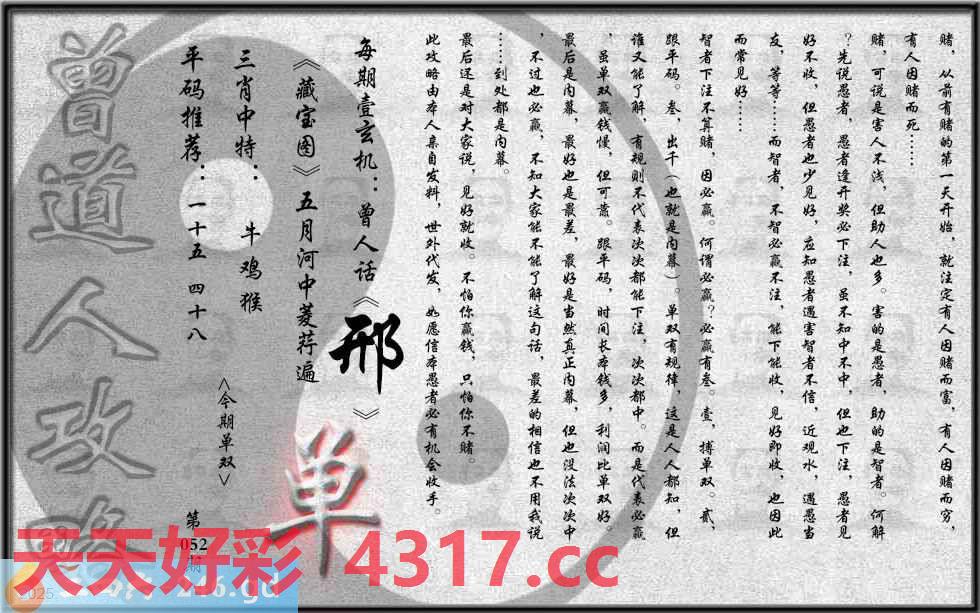 赌，从前有赌的第一天开始，就注定有人因赌而富，有人因赌而穷，
有人因赌而死……
赌，可说是害人不浅，但助人也多。害的是愚者，助的是智者。何解
？先说愚者，愚者逢开奖必下注，虽不知中不中，但也下注，愚者见
好不收，但愚者也少见好，应知愚者遇害智者不信，近观水，遇愚当
友，等等……而智者，不智必赢不注，能下能收，见好即收，也因此
而常见好……
智者下注不算赌，因必赢。何谓必赢？必赢有叁。壹，搏单双。贰，
跟平码。叁，出千（也就是内幕）。单双有规律，这是人人都知，但
谁又能了解，有规则不代表次次都能下注，次次都中。而是代表必赢
，虽单双赢钱慢，但可靠。跟平码，时间长本钱多，利润比单双好。
最后是内幕，最好也是最差，最好是当然真正内幕，但也没法次次中
，不过也必赢，不知大家能不能了解这句话，最差的相信也不用我说
……到处都是内幕。
最后还是对大家说，见好就收。不怕你赢钱，只怕你不赌。
此攻略由本人亲自发料，世外代发，如愿信本愚者必有机会收手。
每期壹玄机：曾人话《邢》
《藏宝图》五月河中菱荇遍
三肖中特：牛鸡猴
平码推荐：一十五 四十八
<今期单双>
单
第
052
期
曾道人攻略
天天好彩 4317.cc
2025
246.gd